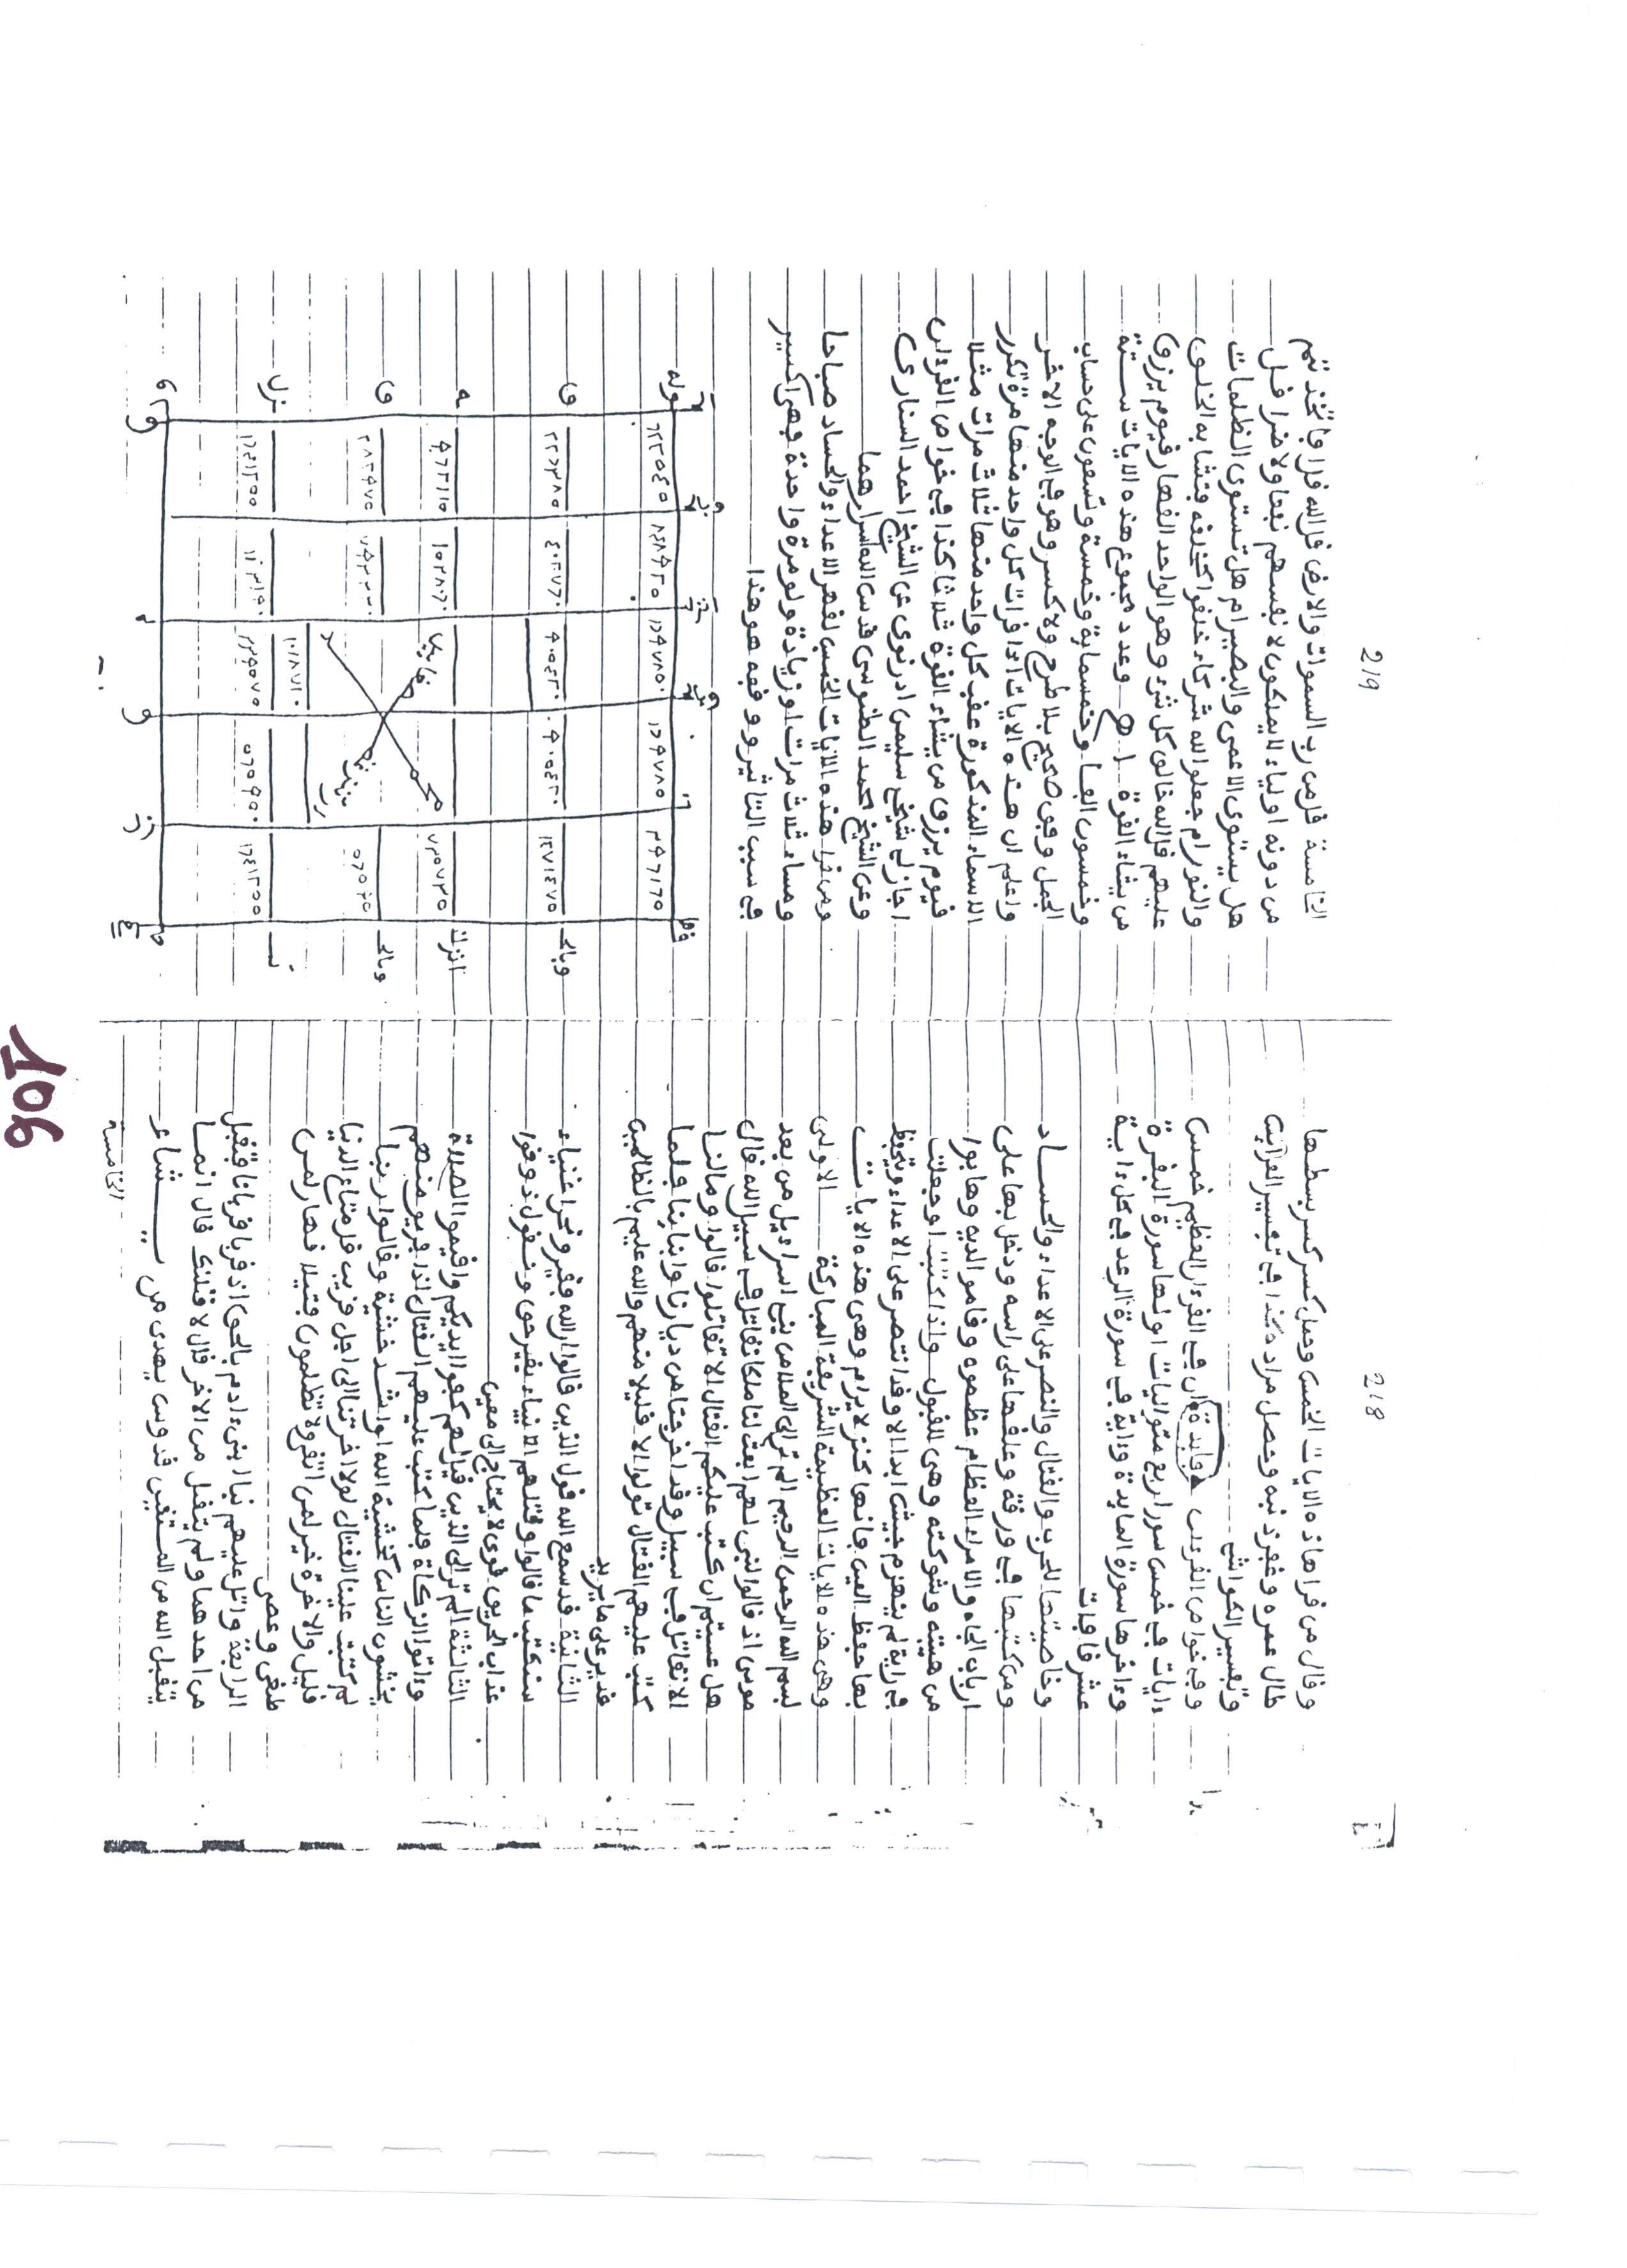 218
وقال من قرا هاذه الايات الخمس وحمل كسر بسطها
طال عمره وغفر ذنبه وحصل مراده كذا في تفسير القرآن
وتفسير الكواشي
وفي خواص القرءان فايدة ان في القرءان العظيم خمس
ءايات في خمس سور اربع متواليات اولها سورة البقرة
وءاخرها سورة المايدة وءاية في سورة الرعد في كل ءاية
عشر قافات
وخاصيتها للحرب والقتال والنصر على الاعداء والحساد
ومن كتبها في ورقة وعلقها على راسه ودخل بها على
ارباب الجاه والامراء العظام عظموه وقاموا اليه وهابوا
من هيبته وشوكته وهى للقبول واذا كتبت اوجعلت
في راية لم ينهزم جيش ابدا الا وقد انتصر على الاعداء ويتحفظ
بها حفظ العين فانها كنز لا يرام وهى هذه الايات
وهى هذه الايات العظيمة الشريفة المباركة الاولى
بسم الله الرحمن الرحيم الم تر الى الملا من بني اسراءيل من بعد
موسى اذ قالوا لنبي لهم ابعث لنا ملكا نقاتل في سبيل الله قال
هل عسيتم ان كتب عليكم القتال الا تقاتلوا قالوا ومالنا
الا نقاتل في سبيل وقد اخرجنا من ديارنا وابنائنا فلما
كتب عليهم القتال تولوا الا قليلا منهم والله عليم بالظالمين
قدير على ما يريد
الثانية قد سمع الله قول الذين قالوا ان الله فقير ونحن اغنياء
سنكتب ما قالوا وقتلهم الانبياء بغير حق ونقول ذوقوا
عذاب الحريق قوى لا يحتاج الى معين
الثالثة الم تر الى الذين قيل لهم كفوا ايديكم واقيموا الصلاة
وءاتوا الزكاة فلما كتب عليهم القتال اذا فريق منهم
يخشون الناس كخشية الله او اشد خشية وقالوا ربنا
لم كتبت علينا القتال لولا اخرتنا الى اجل قريب قل متاع الدنيا
قليل والاخرة خير لمن اتقى ولا تظلمون فتيلا قهار لمن
طغى وعصى
الرابعة واتل عليهم نبا ابني ءادم بالحق اذ قربا قربانا فتقبل
من احدهما ولم يتقبل من الاخر قال لاقتلنك قال انما
يتقبل الله من المتقين قدوس يهدى من يشاء
الخامسة
219
الخامسة قل من رب السموات والارض قل الله قل افاتخذتم
من دونه اولياء لا يملكون لانفسهم نفعا ولا ضرا قل
هل يستوى الاعمى والبصير ام هل تستوى الظلمات
والنور ام جعلوا لله شركاء خلقوا كخلقه فتشابه الخلق
عليهم قل الله خالق كل شيء وهو الواحد القهار قيوم يرزق
من يشاء القوة اهـ وعدد مجموع هذه الايات ستة
وخمسون الفا وخمسماية وخمسة وتسعون على حساب
الجمل وفق صحيح بلا طرح ولا كسر وهو في الوجه الاخر
واعلم ان هذه الايات اذا قرات كل واحد منها مرة تكرر
الاسماء المذكورة عقب كل واحد منها ثلاث مرات مثلا
قيوم يرزق من يشاء القوة ثلاثا كذا في خواص القرءان
اجازلى شيخي سليمن ادرنوى عن الشيخ احمد السنارى
وعن الشيخ محمد الطنوسى قدس الله اسرارهما
ومن قرا هذه الايات الخمس لقهر الاعداء والحساد صباحا
ومساء ثلاث مرات او زيادة ولو مرة واحدة فهى اكسير
في سبب التاثير ووفقه هو هذا
وبالحـ
انزلـ
وبالحـ
ق
ه
ق
نزل
106